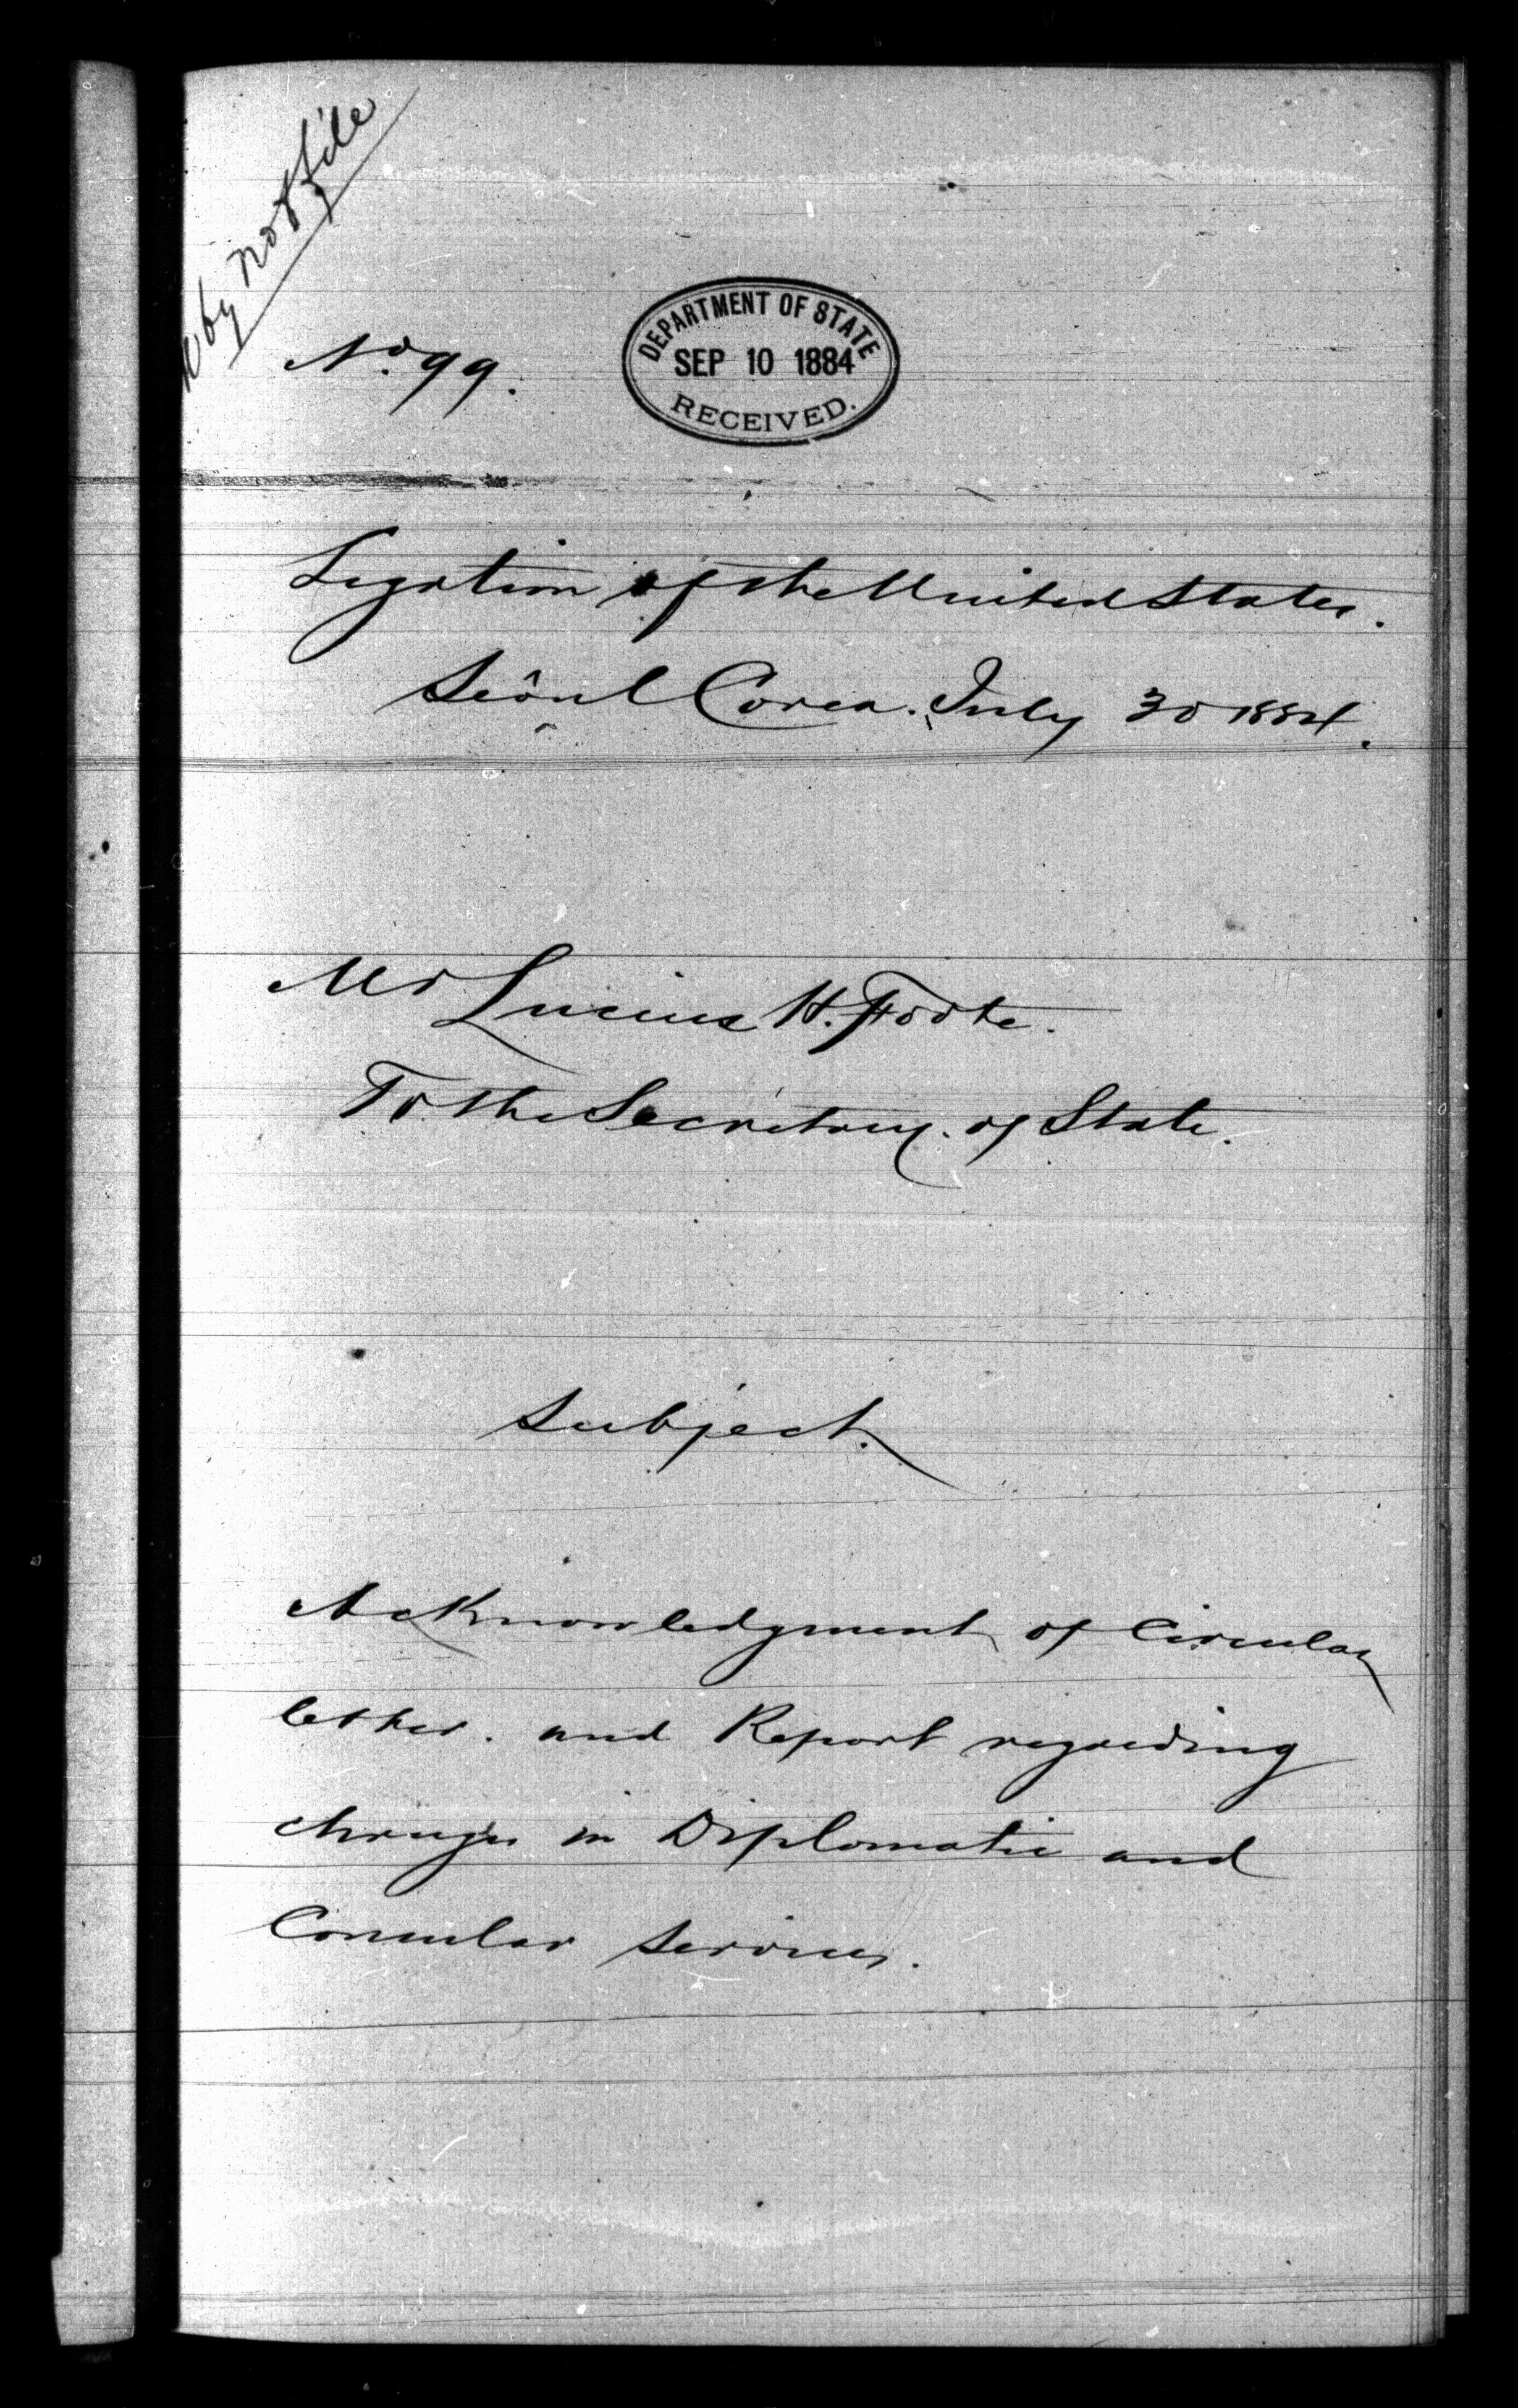 by not file
No. 99.
DEPARTMENT OF STATE
SEP 10 1884
RECEIVED.
Legation of the United States.
Seôul Corea. July 30 1884.
Mr Lucius H. Foote.
To the Secretary of State.
Subject.
Acknowledgment of Circular
letter. and Report regarding
changes in Diplomatic and
Consular Services.